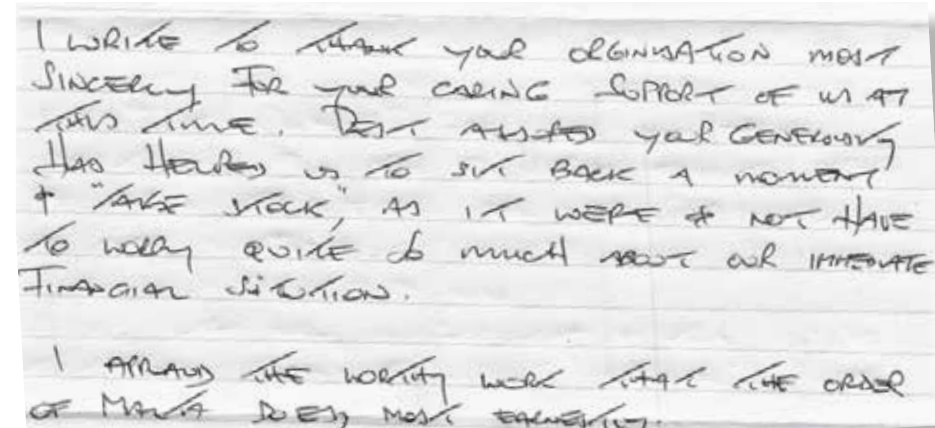 I WRITE TO THANK YOUR ORGINISATION MOST
SINCERLY FOR YOUR CARING SUPPORT OF US AT
THIS TIME. REST ASSURED YOUR GENEROSITY
HAS HELPED US TO SIT BACK A MOMENT
+ "TAKE STOCK", AS IT WERE + NOT HAVE
TO WORRY QUITE SO MUCH ABOUT OUR IMMEDIATE
FINANCIAL SITUTION.
I APPLAUD THE WORTHY WORK THAT THE ORDER
OF MALTA DOES, MOST EARNESTLY.